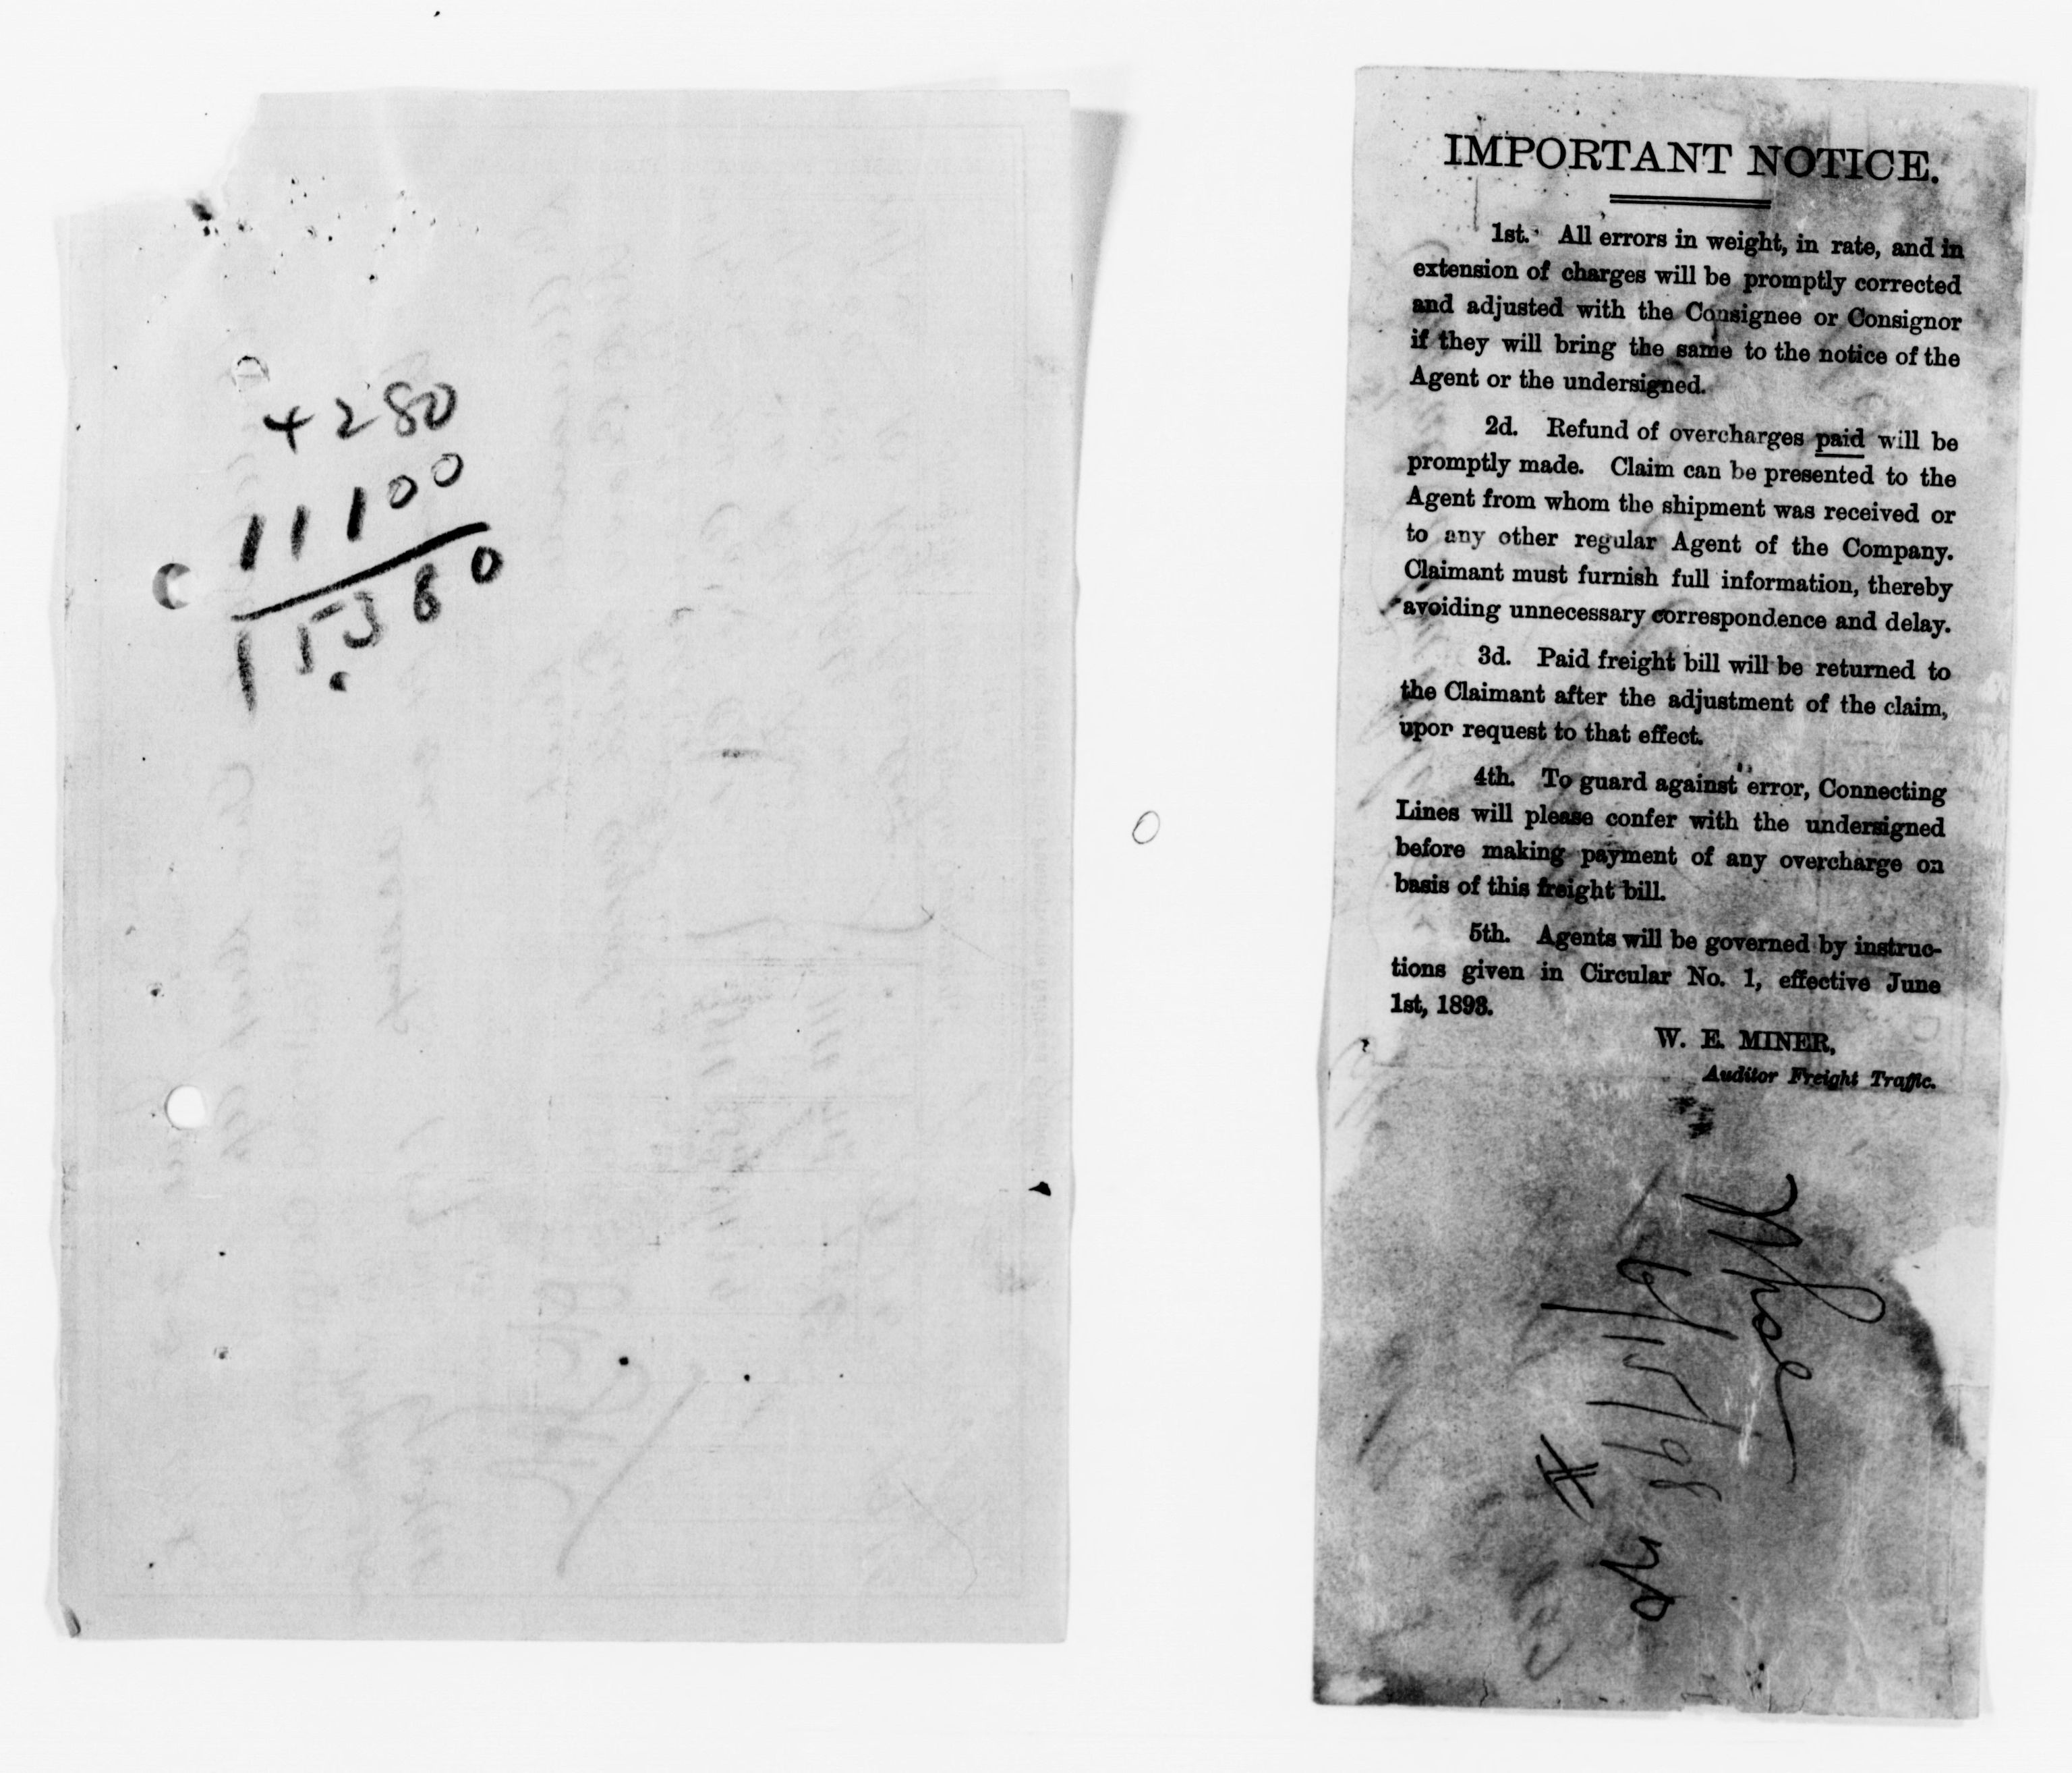 4280
11100
15380
IMPORTANT NOTICE.
1st. All errors in weight, in rate, and in
extension of charges will be promptly corrected
and adjusted with the Consignee or Consignor
if they will bring the same to the notice of the
Agent or the undersigned.
2d. Refund of overcharges paid will be
promptly made. Claim can be presented to the
Agent from whom the shipment was received or
to any other regular Agent of the Company.
Claimant must furnish full information, thereby
avoiding unnecessary correspondence and delay.
3d. Paid freight bill will be returned to
the Claimant after the adjustment of the claim,
upon request to that effect.
4th. To guard against error, Connecting
Lines will please confer with the undersigned
before making payment of any overcharge on
basis of this freight bill.
5th. Agents will be governed by instruc-
tions given in Circular No. 1, effective June
1st, 1893.
W. E. MINER,
Auditor Freight Traffic.
6/15/98